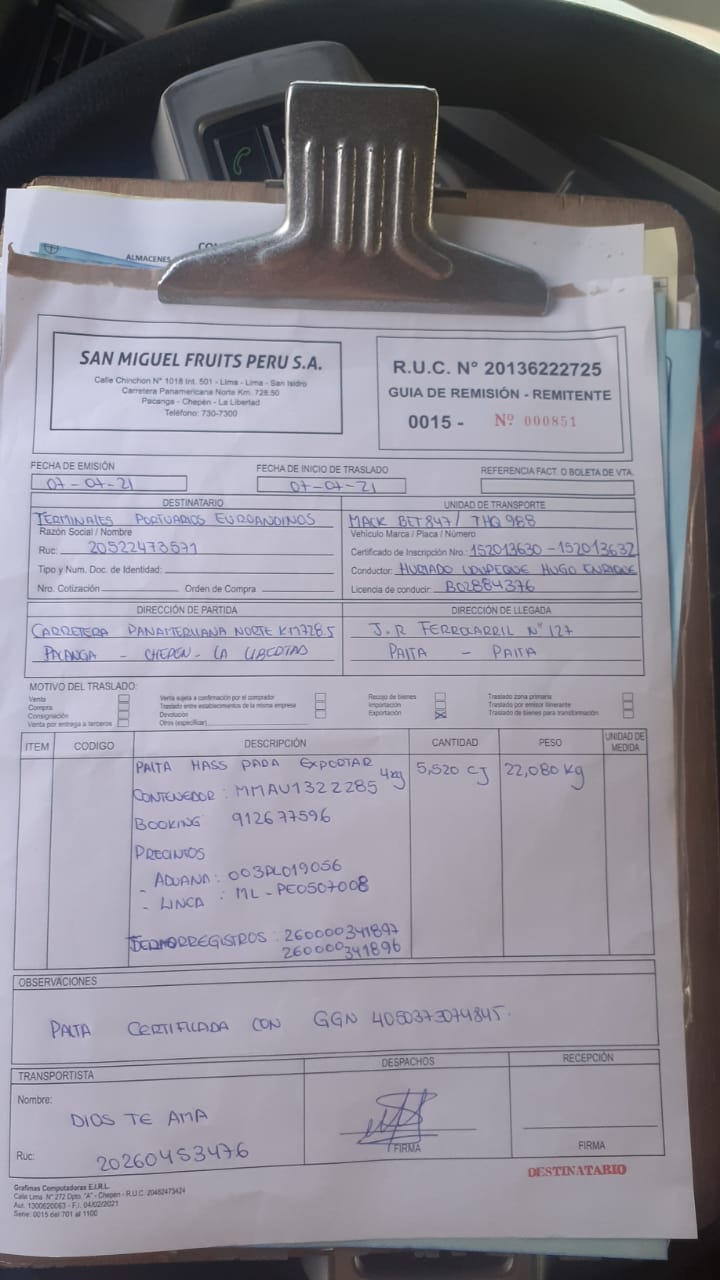 ALMACENES
SAN MIGUEL FRUITS PERU S.A.
Calle Chinchon N° 1018 Int. 501 - Lima - Lima - San Isidro
Carretera Panamericana Norte Km. 728.50
Pacanga - Chepén - La Libertad
Teléfono: 730-7300
R.U.C. N° 20136222725
GUIA DE REMISIÓN - REMITENTE
0015 - Nº 000851
FECHA DE EMISIÓN
07-07-21
FECHA DE INICIO DE TRASLADO
07-07-21
REFERENCIA FACT. O BOLETA DE VTA.
DESTINATARIO
TERMINALES PORTUARIOS EUROANDINOS
Razón Social / Nombre
Ruc: 20522473571
Tipo y Num. Doc. de Identidad:
Nro. Cotización Orden de Compra
UNIDAD DE TRANSPORTE
MACK BET847 / THQ 988
Vehículo Marca / Placa / Número
Certificado de Inscripción Nro.: 152013630 - 152013632
Conductor: HURTADO HUGO ENRIQUE
Licencia de conducir: B02884376
DIRECCIÓN DE PARTIDA
CARRETERA PANAMERICANA NORTE KM728.5
PACANGA - CHEPEN - LA LIBERTAD
DIRECCIÓN DE LLEGADA
J.R FERROCARRIL N° 127
PAITA - PAITA
MOTIVO DEL TRASLADO:
Venta
Compra
Consignación
Venta por entrega a terceros
Venta sujeta a confirmación por el comprador
Traslado entre establecimientos de la misma empresa
Devolución
Otros (especificar)
Recojo de bienes
Importación
Exportación
Traslado zona primaria
Traslado por emisor itinerante
Traslado de bienes para transformación
ITEM CODIGO DESCRIPCIÓN CANTIDAD PESO UNIDAD DE MEDIDA
PALTA HASS PARA EXPORTAR 4kg 5,520 CJ 22,080 Kg
CONTENEDOR : MMAU1322285
BOOKING 912677596
PRECINTOS
- ADUANA : 003PL019056
- LINEA : ML-PE0507008
TERMORREGISTROS : 260000341897
260000341896
OBSERVACIONES
PALTA CERTIFICADA CON GGN 4050373074845.
TRANSPORTISTA
Nombre:
DIOS TE AMA
Ruc: 20260453476
DESPACHOS
FIRMA
RECEPCIÓN
FIRMA
DESTINATARIO
Grafimas Computadoras E.I.R.L.
Calle Lima N° 272 Dpto. "A" - Chepen - R.U.C. 20482473424
Aut. 1300620063 - F.I. 04/02/2021
Serie: 0015 del 701 al 1100